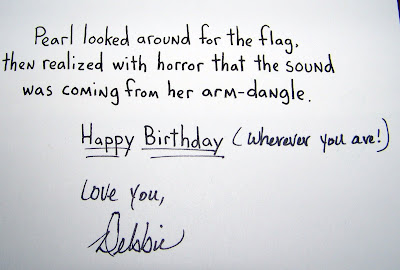 Pearl looked around for the flag,
then realized with horror that the sound
was coming from her arm-dangle.
Happy Birthday (wherever you are!)
Love you,
Debbie